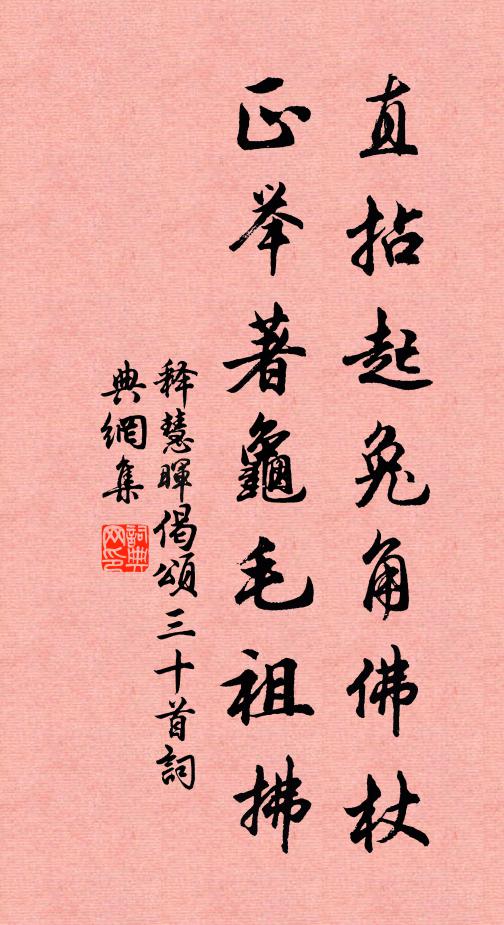 直拈起兔角佛杖
正举著龜毛祖拂
释慧暉偈頌三十首詞
典網集
詞典网印